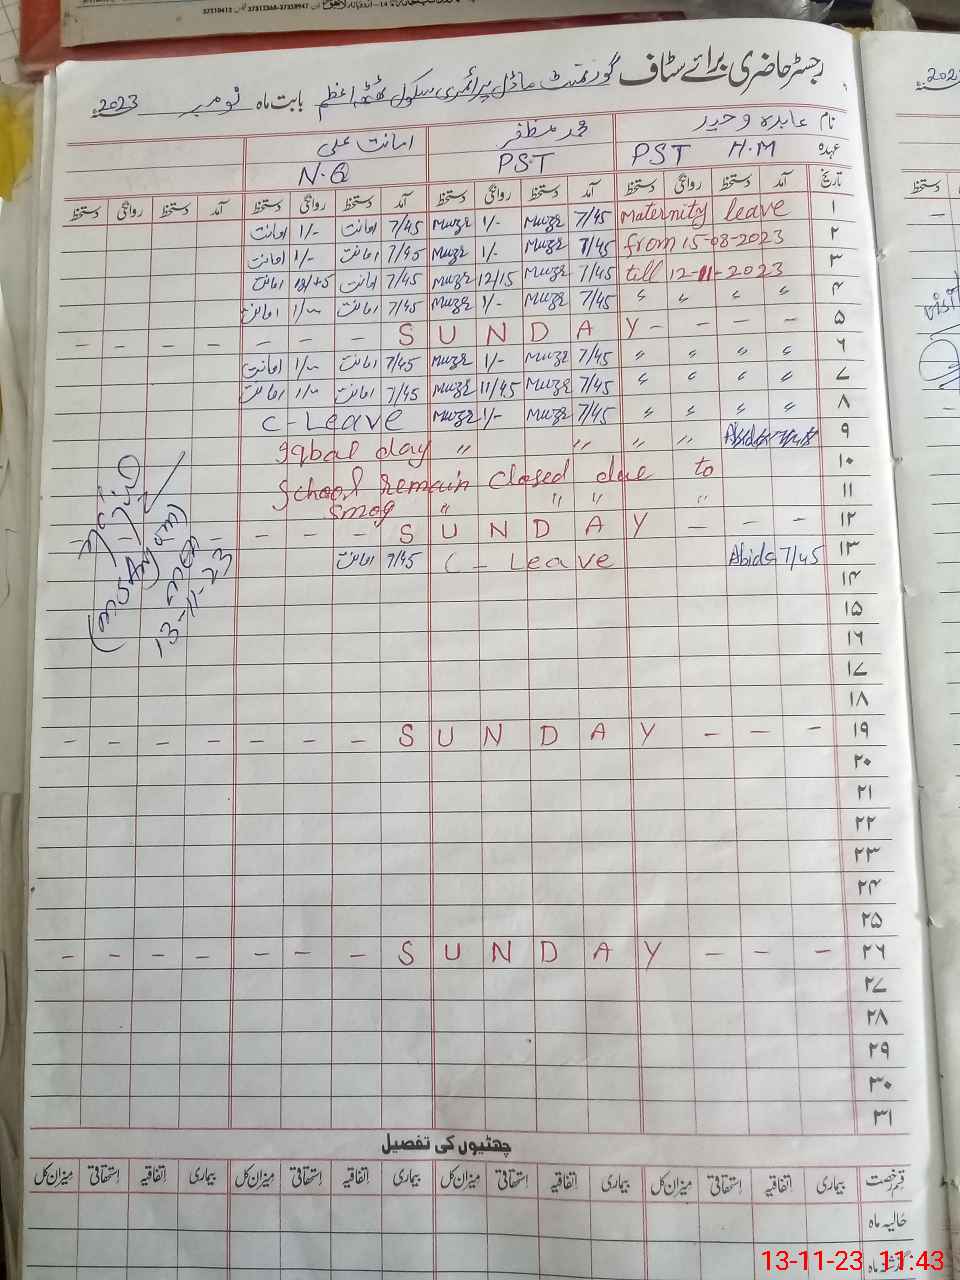 37310412 فون 37311368-37358947
رجسٹر حاضری برائے سٹاف گورنمنٹ ماڈل پرائمری سکول ٹھٹھہ اعظم بابت ماہ نومبر 2023ء
نام عابدہ وحید محمد مظفر امانت علی
عہدہ PST H.M PST N.Q
تاریخ آمد دستخط روانگی دستخط آمد دستخط روانگی دستخط آمد دستخط روانگی دستخط آمد دستخط روانگی دستخط
۱ Maternity leave 7/45 Muzr 1/- Muzr 7/45 امانت 1/- امانت
۲ from 15-08-2023 7/45 Muzr 1/- Muzr 7/45 امانت 1/- امانت
۳ till 12-11-2023 7/45 Muzr 12/15 Muzr 7/45 امانت امانت
۴ " " " " 7/45 Muzr 1/- Muzr 7/45 امانت 1/- امانت
۵ - - - - - - S U N D A Y - - - -
۶ " " " " 7/45 Muzr 1/- Muzr 7/45 امانت 1/- امانت
۷ " " " " 7/45 Muzr 11/45 Muzr 7/45 امانت 1/- امانت
۸ " " " " 7/45 Muzr 1/- Muzr C-Leave
۹ Iqbal day " " " " Abida 7/45
۱۰ School remain closed due to
۱۱ Smog " " " "
۱۲ - - - - S U N D A Y - - -
۱۳ Abida 7/45 C-Leave 7/45 امانت
۱۴
۱۵
۱۶
۱۷
۱۸
۱۹ - - - - - - - S U N D A Y - - -
۲۰
۲۱
۲۲
۲۳
۲۴
۲۵
۲۶ - - - - - - - S U N D A Y - - -
۲۷
۲۸
۲۹
۳۰
۳۱
13-11-23
چھٹیوں کی تفصیل
قسم رخصت بیماری اتفاقیہ استحقاقی میزان کل بیماری اتفاقیہ استحقاقی میزان کل بیماری اتفاقیہ استحقاقی میزان کل بیماری اتفاقیہ استحقاقی میزان کل
حالیہ ماہ
گزشتہ ماہ
2023
دستخط
visit
13-11-23 11:43